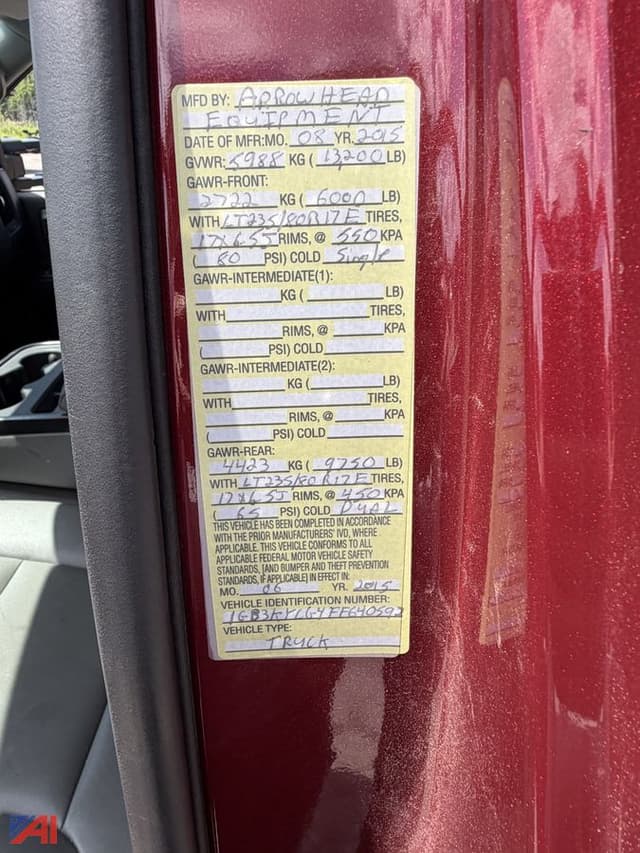 MFD BY: ARROWHEAD
EQUIPMENT
DATE OF MFR:MO. 08 YR. 2015
GVWR: 5988 KG ( 13,200 LB)
GAWR-FRONT:
2722 KG ( 6000 LB)
WITH LT235/80R17E TIRES,
17X6.5J RIMS, @ 550 KPA
( 80 PSI) COLD Single
GAWR-INTERMEDIATE(1):
KG ( LB)
WITH TIRES,
RIMS, @ KPA
( PSI) COLD
GAWR-INTERMEDIATE(2):
KG ( LB)
WITH TIRES,
RIMS, @ KPA
( PSI) COLD
GAWR-REAR:
4423 KG ( 9750 LB)
WITH LT235/80R17E TIRES,
17X6.5J RIMS, @ 450 KPA
( 65 PSI) COLD DUAL
THIS VEHICLE HAS BEEN COMPLETED IN ACCORDANCE
WITH THE PRIOR MANUFACTURERS' IVD, WHERE
APPLICABLE. THIS VEHICLE CONFORMS TO ALL
APPLICABLE FEDERAL MOTOR VEHICLE SAFETY
STANDARDS, [AND BUMPER AND THEFT PREVENTION
STANDARDS, IF APPLICABLE] IN EFFECT IN:
MO. 06 YR. 2015
VEHICLE IDENTIFICATION NUMBER:
VEHICLE TYPE:
TRUCK
AI